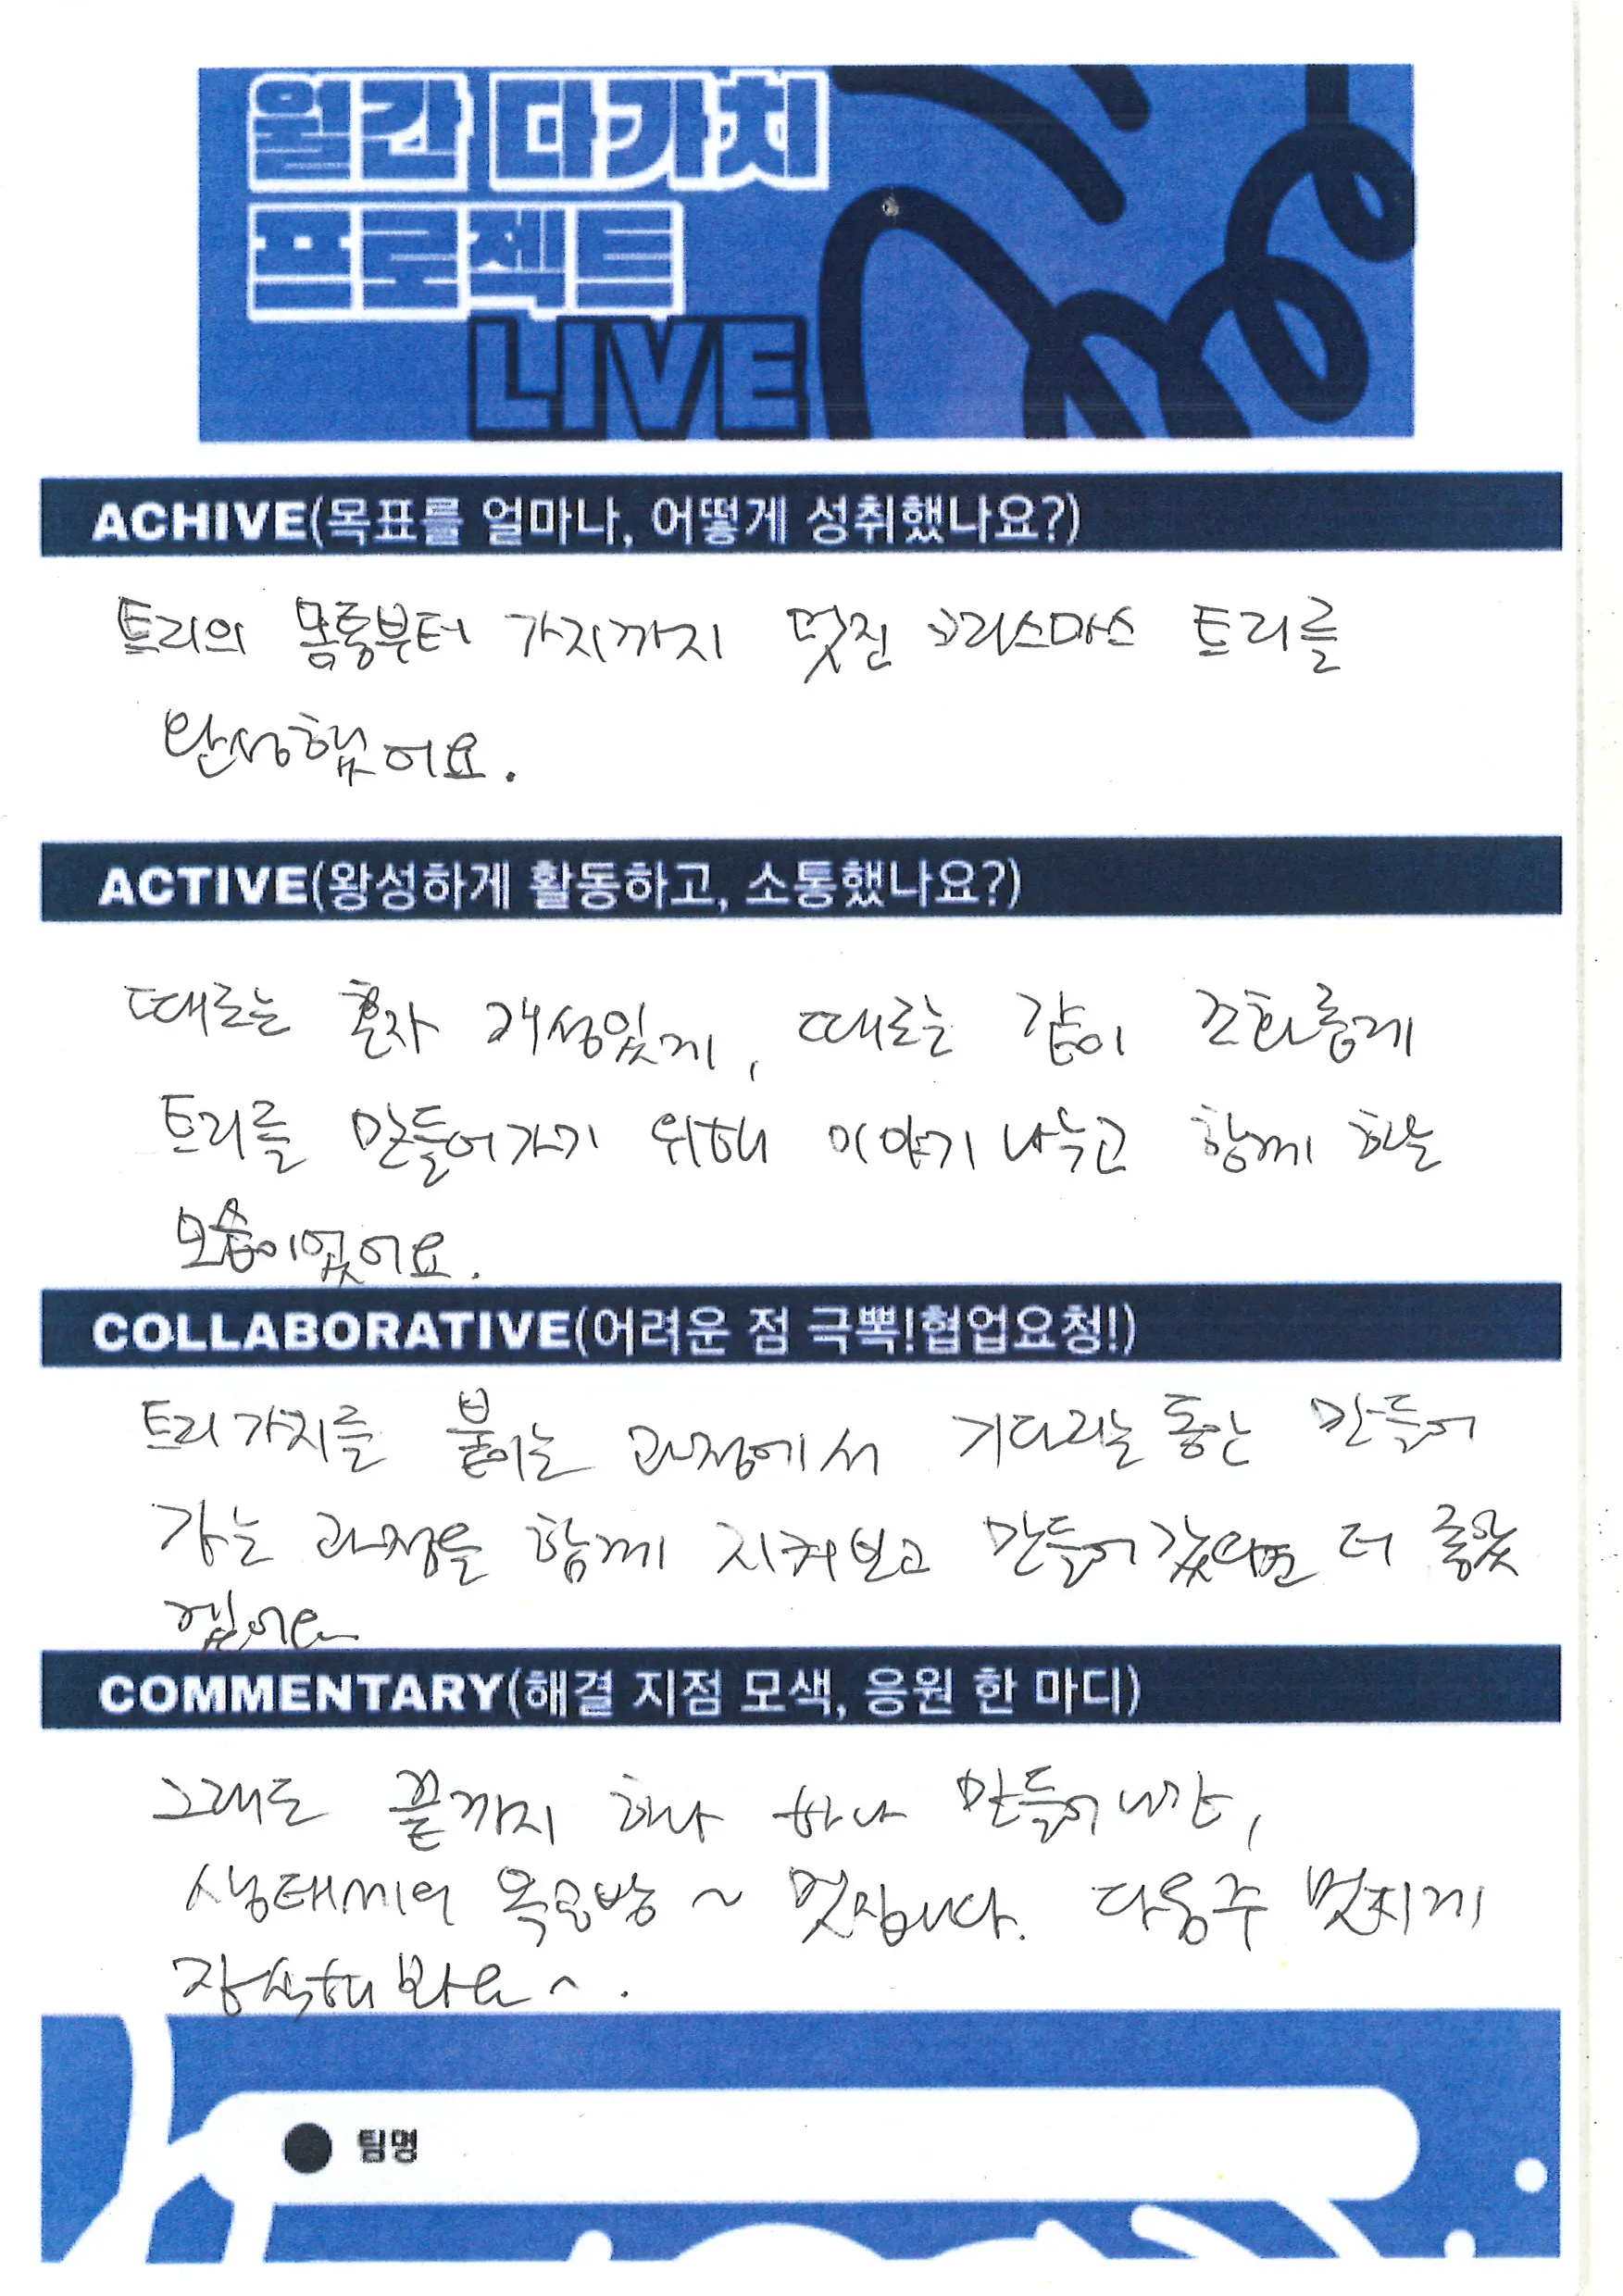 월간 다가치
프로젝트
LIVE
ACHIVE(목표를 얼마나, 어떻게 성취했나요?)
트리의 몸통부터 가지까지 멋진 크리스마스 트리를
완성했어요.
ACTIVE(왕성하게 활동하고, 소통했나요?)
때로는 혼자 개성있게, 때로는 같이 조화롭게
트리를 만들어가기 위해 이야기 나누고 함께 하는
모습이었어요.
COLLABORATIVE(어려운 점 극뽁!협업요청!)
트리가지를 붙이는 과정에서 기다리는 동안 만들어
가는 과정을 함께 지켜보고 만들어갔다면 더 좋았
겠어요
COMMENTARY(해결 지점 모색, 응원 한 마디)
그래도 끝까지 하나 하나 만들어나간,
생태씨의 목공방~ 멋집니다. 다음주 멋지게
장식해봐요~.
팀명